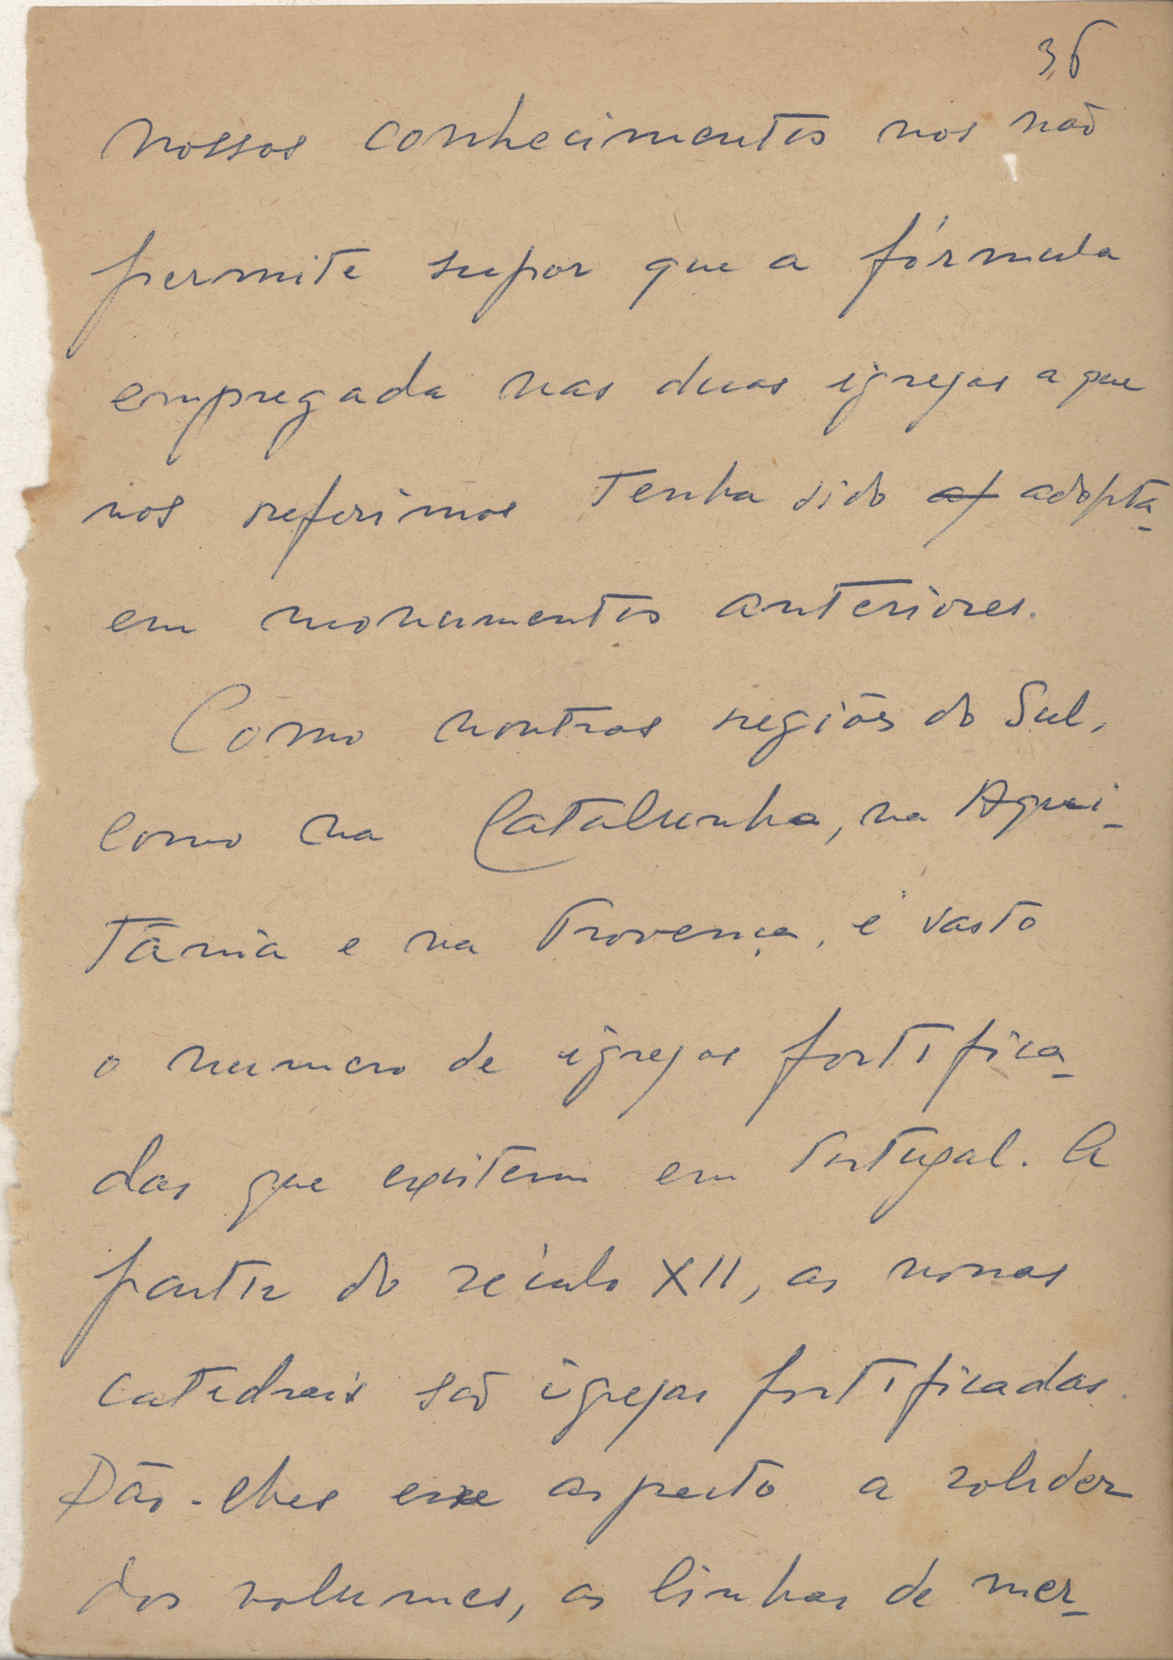 36
nossos conhecimentos nos não
permite supor que a fórmula
empregada nas duas igrejas a que
nos referimos tenha sido af adopta-
em monumentos anteriores.
Como noutras regiões do Sul,
como na Catalunha, na Aqui-
tânia e na Provença, é vasto
o numero de igrejas fortifica-
das que existem em Portugal. A
partir do século XII, as nossas
catedrais são igrejas fortificadas.
Dão-lhes esse aspecto a solidez
dos volumes, as linhas de mer-